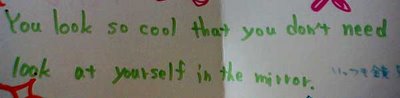 You look so cool that you don't need
look at yourself in the mirror. いつも鏡